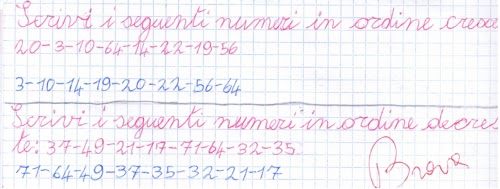 Scrivi i seguenti numeri in ordine cresce
20-3-10-64-14-22-19-56
3-10-14-19-20-22-56-64
Scrivi i seguenti numeri in ordine decres
te: 37-49-21-17-71-64-32-35
71-64-49-37-35-32-21-17
Brava